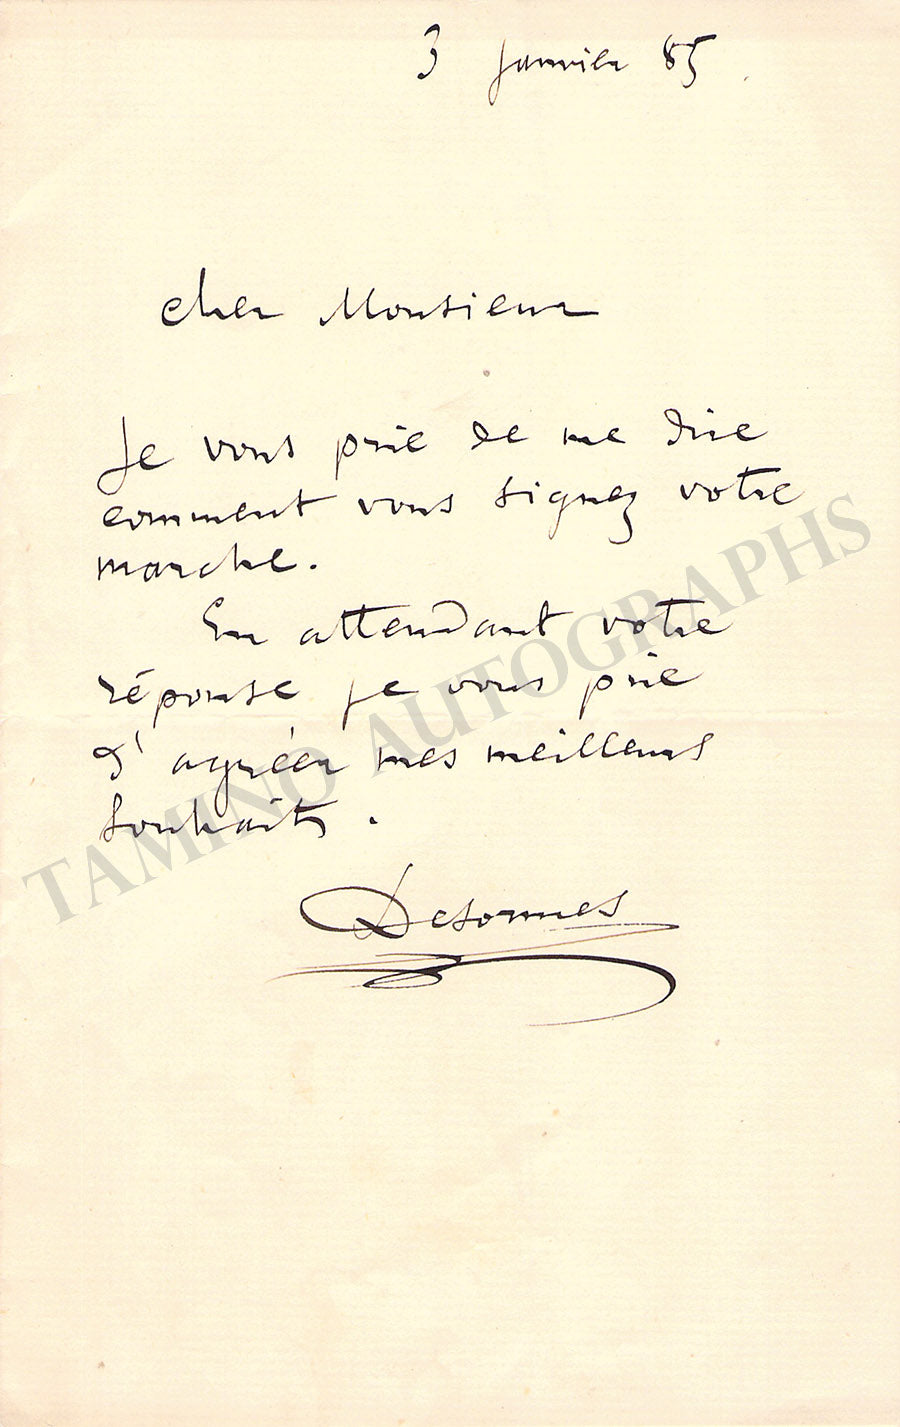 3 janvier 85
cher Monsieur
Je vous prie de me dire
comment vous signez votre
marche.
En attendant votre
réponse je vous prie
d'agréer mes meilleurs
souhaits.
Desormes
TAMINO AUTOGRAPHS